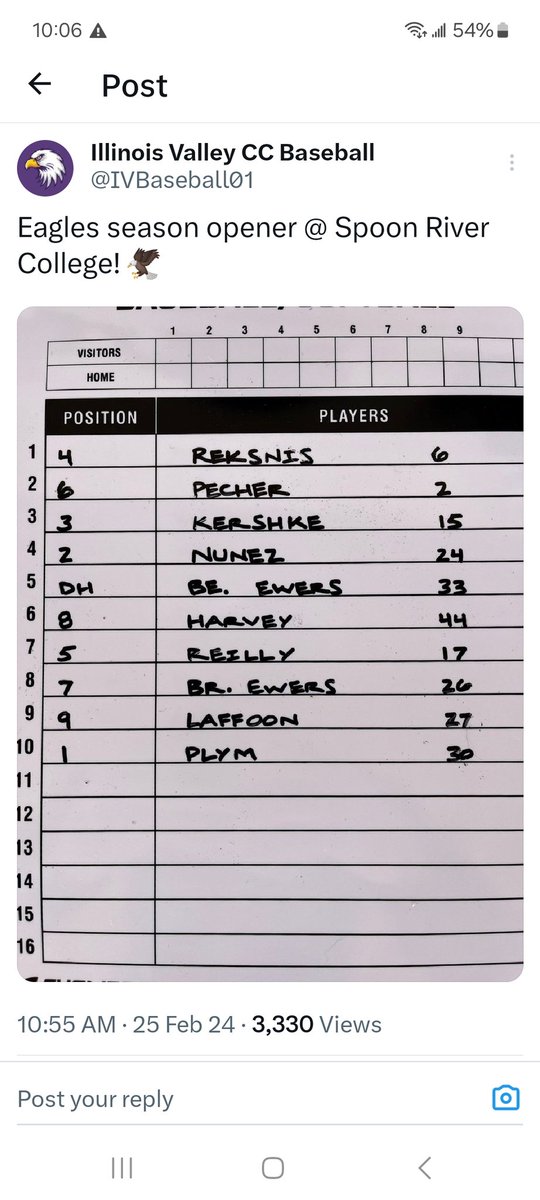 10:06 54%
Post
Illinois Valley CC Baseball
@IVBaseball01
Eagles season opener @ Spoon River
College!
1 2 3 4 5 6 7 8 9
VISITORS
HOME
POSITION PLAYERS
1 4 REKSNIS 6
2 6 PECHER 2
3 3 KERSHKE 15
4 2 NUNEZ 24
5 DH BE. EWERS 33
6 8 HARVEY 44
7 5 REILLY 17
8 7 BR. EWERS 26
9 9 LAFFOON 27
10 1 PLYM 30
11
12
13
14
15
16
10:55 AM · 25 Feb 24 · 3,330 Views
Post your reply